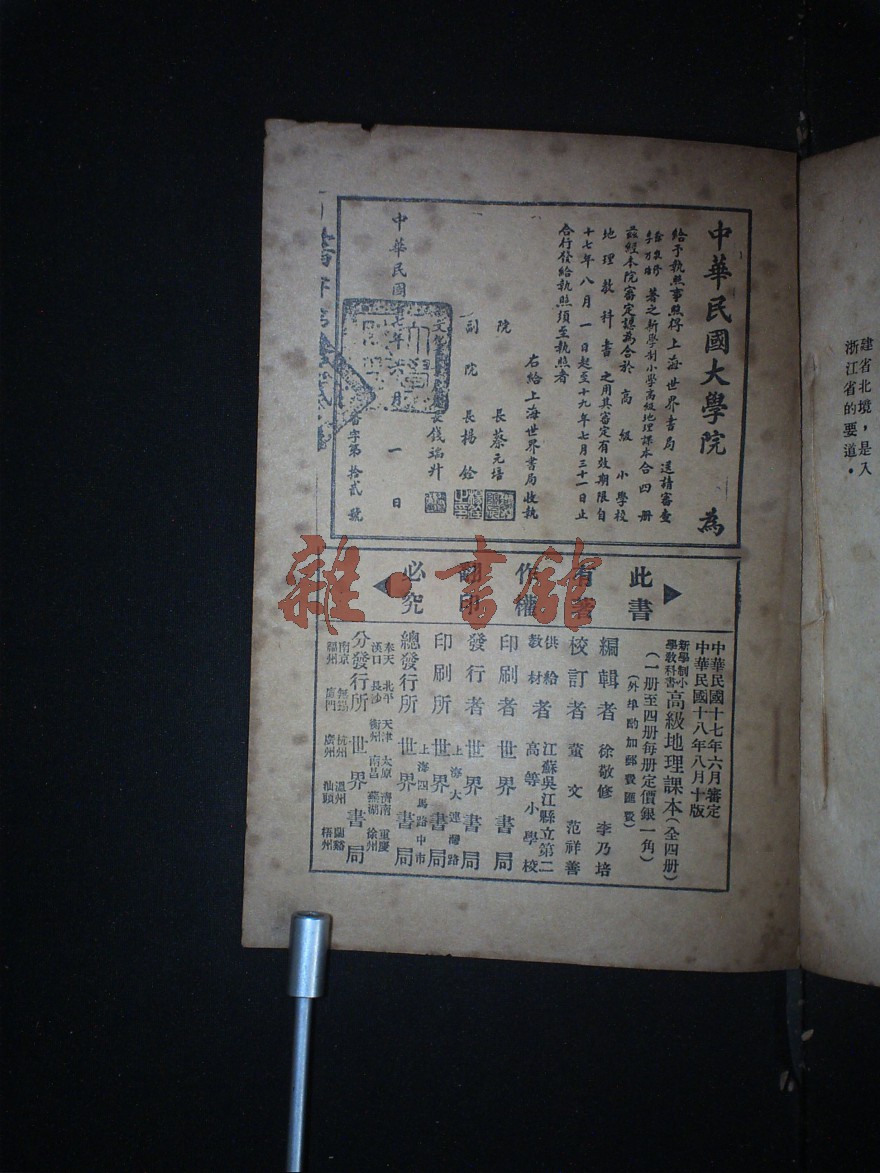 中華民國大學院 為
給予執照事照得上海世界書局送請審查
著之新學制小學高級地理課本合四册
茲經本院審定認為合於高級小學校
地理教科書之用其審定有效期限自
十七年八月一日起至十九年七月三十一日止
合行發給執照須至執照者
右給上海世界書局收執
院長蔡元培
副院長楊銓
長錢端升
中華民國十七年六月一日
字第拾貳號
此書有著作權翻印必究
中華民國十七年六月審定
中華民國十八年八月十版
新學制小學教科書高級地理課本(全四册)
(一册至四册每册定價銀一角)
(外埠酌加郵費匯費)
編輯者 徐敬修 李乃培
校訂者 董文 范祥善
供給教材者 江蘇吳江縣立第二高等小學校
印刷者 世界書局
發行者 世界書局
印刷所 上海大連灣路 世界書局
總發行所 上海四馬路中市 世界書局
分發行所 世界書局
奉天 北平 天津 太原 濟南 重慶
漢口 長沙 衡州 南昌 蕪湖 徐州
南京 無錫 杭州 溫州 蘭谿
福州 廈門 廣州 汕頭 梧州
建省北境,是入
浙江省的要道。
雜·書館